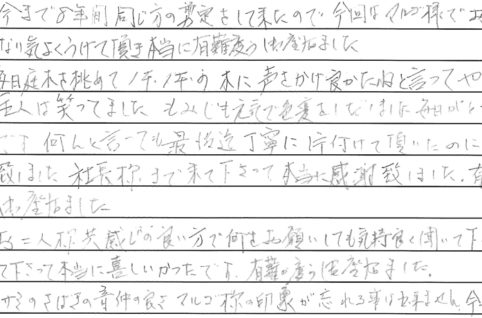 今まで8年間同じ方の剪定をして来たので今回はマルゴ様でお
なり気よくうけて頂き本当に有難度う御座ねました
毎日庭木を眺めて ノ千ノ千の 木に声をかけ良かったねと言ってや
主人は笑ってました もみじも元気で
何んと言っても最後迄丁寧に片付けて頂いたのに
致しました 社長様まで来て下さって本当に感謝致しました。有
御座ねました
お二人様共感じの良い方で何をお願いしても気持良く聞いて下
て下さって本当に喜しいかったです。有難度う御座ねました。
マルゴ様の印象が忘れる事は出来ません。今